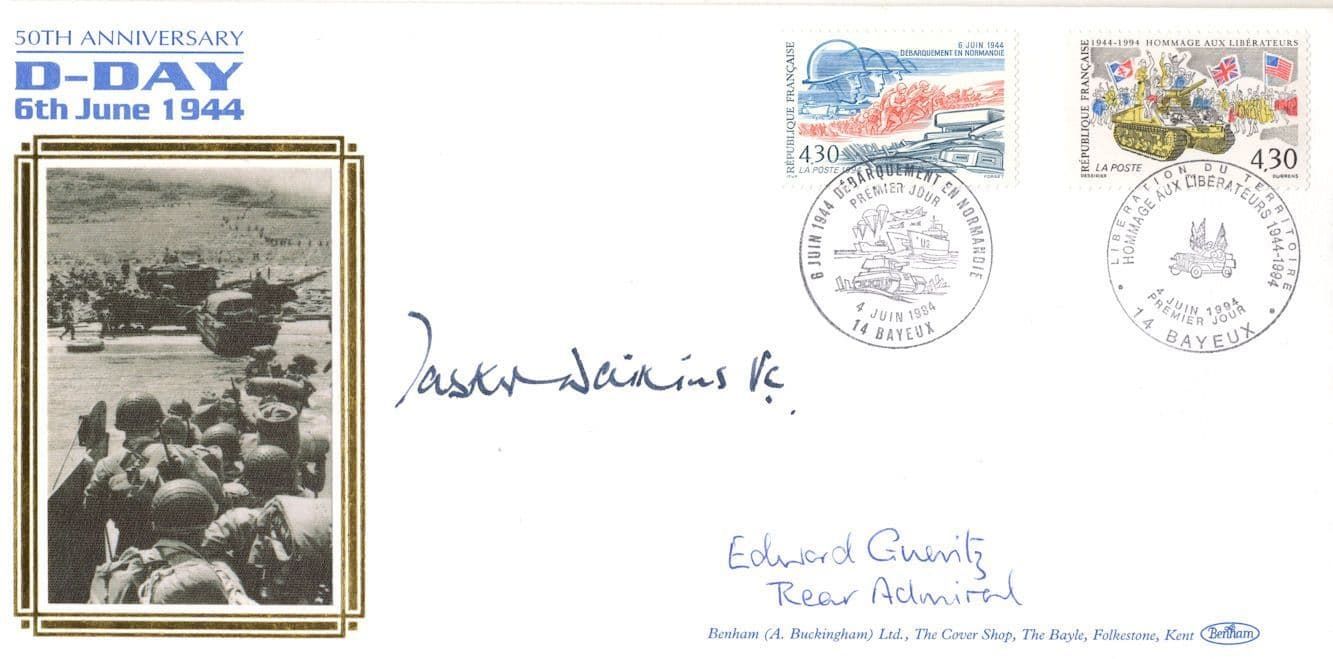 50TH ANNIVERSARY
D-DAY
6th June 1944
RÉPUBLIQUE FRANÇAISE
6 JUIN 1944
DÉBARQUEMENT EN NORMANDIE
4,30
LA POSTE 1994
FORGET
RÉPUBLIQUE FRANÇAISE
1944-1994 HOMMAGE AUX LIBÉRATEURS
LA POSTE
4,30
DURRENS
6 JUIN 1944 DÉBARQUEMENT EN NORMANDIE
PREMIER JOUR
4 JUIN 1994
14 BAYEUX
LIBÉRATION DU TERRITOIRE
HOMMAGE AUX LIBÉRATEURS 1944-1994
4 JUIN 1994
PREMIER JOUR
14 BAYEUX
Tasker Watkins VC.
Edward Gueritz
Rear Admiral
Benham (A. Buckingham) Ltd., The Cover Shop, The Bayle, Folkestone, Kent Benham